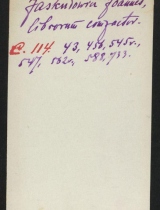 Jaskulowicz Joannes,
librorum compactor.
C. 114. 43, 456, 545v.,
547, 562v, 588, 733.